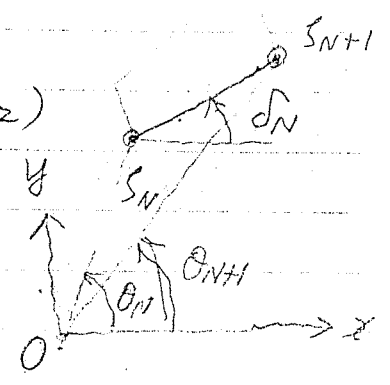 ζN+1
z)
δN
y
ζN
θN+1
θN
O
x